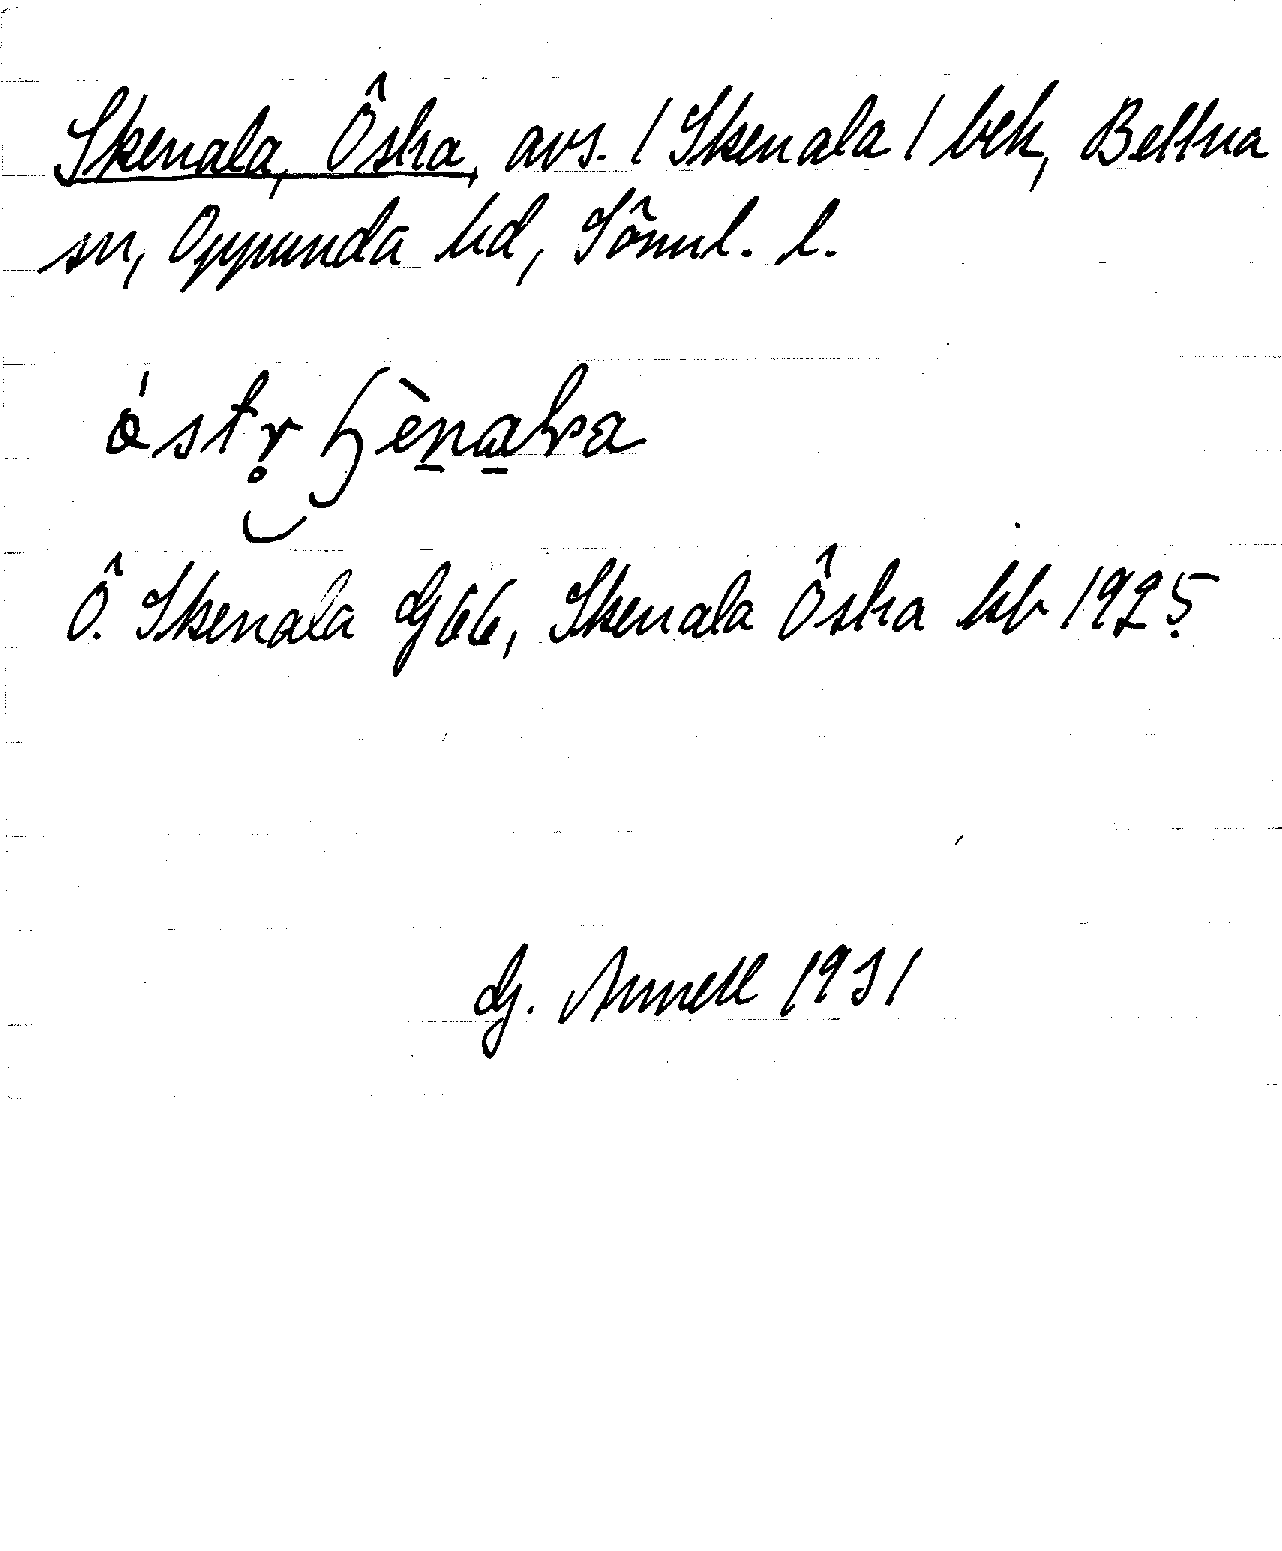 Skenala, Östra, avs. (Skenala) bek, Bettna
sn, Oppunda hd, Söml. l.
Ö. Skenala Gf 66, Skenala Östra hb 1925
G. Annell 1931